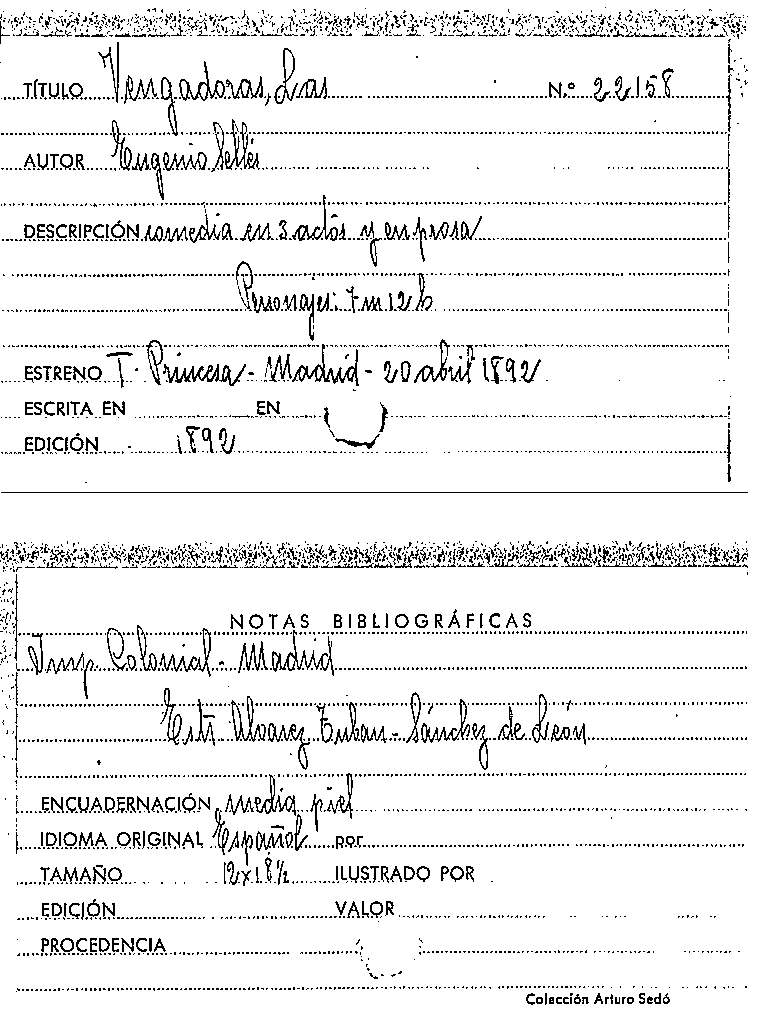 TÍTULO Vengadoras, Las N.º 22158
AUTOR Eugenio Sellés
DESCRIPCIÓN comedia en 3 actos y en prosa
Personajes: 7 m 12 h
ESTRENO T. Princesa - Madrid - 20 abril 1892
ESCRITA EN EN
EDICIÓN 1892
NOTAS BIBLIOGRÁFICAS
Imp Colonial - Madrid
Estr Alvarez Tuban - Sánchez de León
ENCUADERNACIÓN media piel
IDIOMA ORIGINAL Español por
TAMAÑO 12 x 18 ½ ILUSTRADO POR
EDICIÓN VALOR
PROCEDENCIA
Colección Arturo Sedó